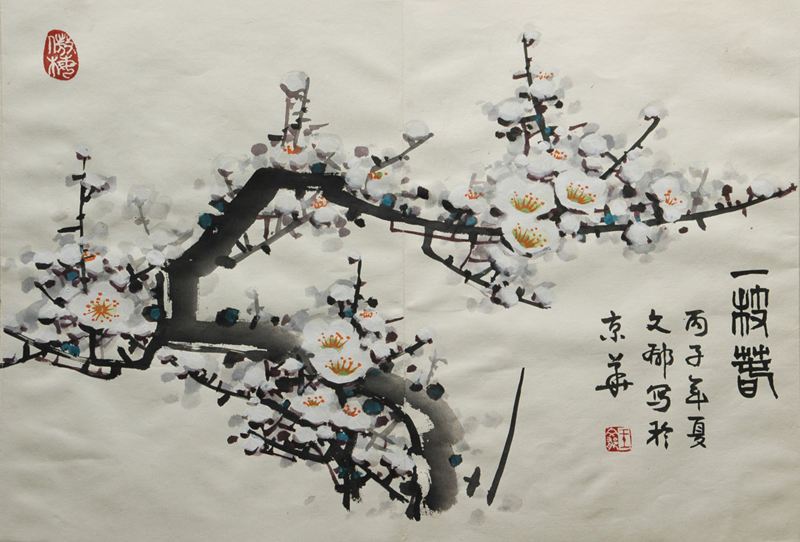 一枝春
丙子年夏
文郁写於
京華